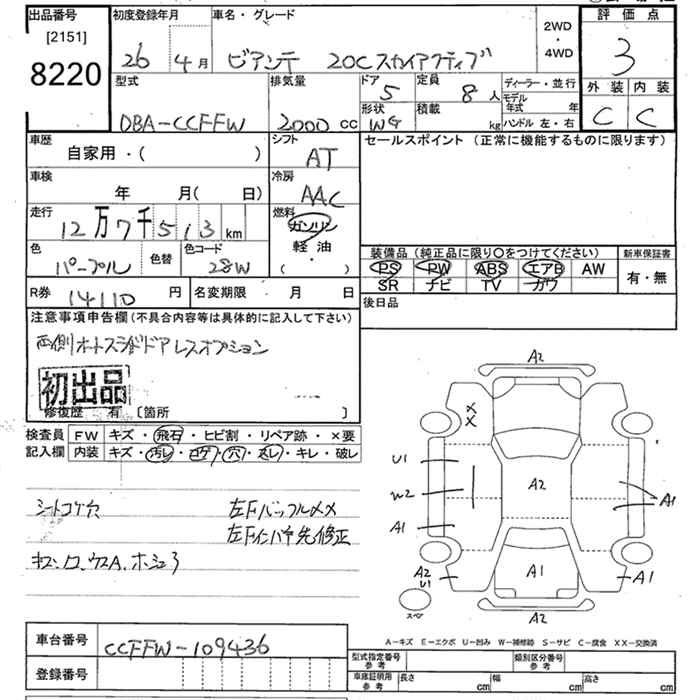 出品番号 初度登録年月 車名・グレード 2WD・4WD 評価点
[2151]
8220
26年 4月 ビアンテ 20Cスカイアクティブ 3
型式 排気量 ドア 定員 ディーラー・並行 外装 内装
DBA-CCFFW 2000 CC 5 8人 モデル年式 年 C C
形状 積載 ハンドル 左・右
WG kg
車歴 シフト セールスポイント (正常に機能するものに限ります)
自家用・( ) AT
車検 冷房
年 月( 日) AAC
走行 燃料
12万7千513 km ガソリン
軽油
( ・ )
色 色替 色コード 装備品 (純正品に限り○をつけてください) 新車保証書
パープル 28W PS PW ABS エアB AW 有・無
SR ナビ TV カワ
R券 14110 円 名変期限 月 日 後日品
注意事項申告欄 (不具合内容等は具体的に記入して下さい)
両側オートスライドドア レスオプション
初出品
修復歴 有 [箇所 ]
検査員 FW キズ・飛石・ヒビ割・リペア跡・×要
記入欄 内装 キズ・汚レ・コゲ・穴・スレ・キレ・破レ
シートコゲ穴 左Fバッフルメメ
左Fインパネ先修正
A2
X
X
U1
W2
A1
A2
A1
A2
U1
スペア
A1
A1
A2
A−キズ E−エクボ U−凹み W−補修跡 S−サビ C−腐食 XX−交換済
車台番号 CCFFW-109436
登録番号
型式指定番号 参考 類別区分番号 参考
車庫証明用 参考 長さ cm 幅 cm 高さ cm